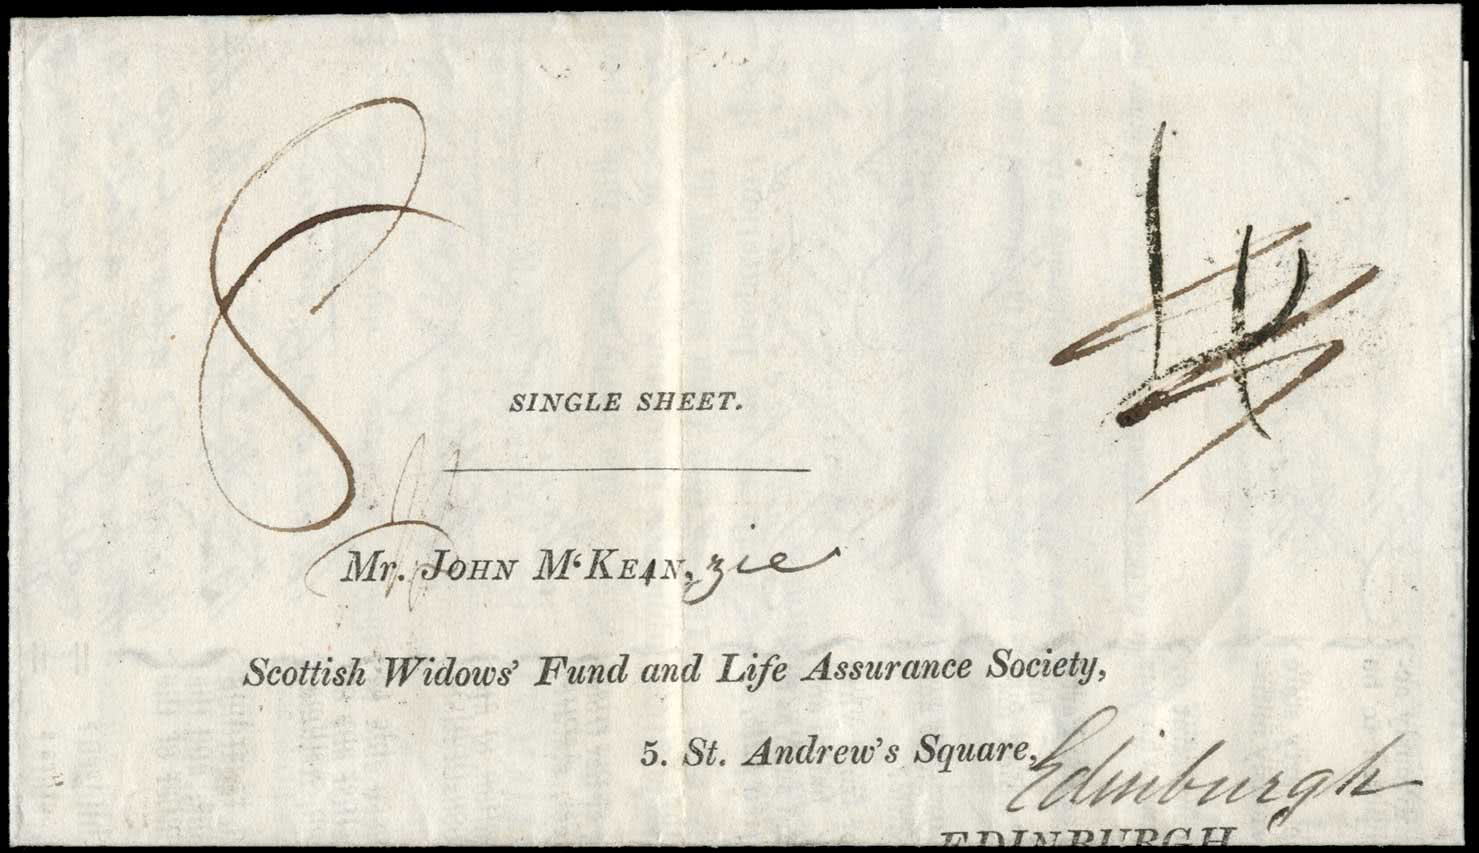 8
SINGLE SHEET.
Mr. JOHN M‘KEAN, zie
Scottish Widows’ Fund and Life Assurance Society,
5. St. Andrew’s Square,
Edinburgh
EDINBURGH